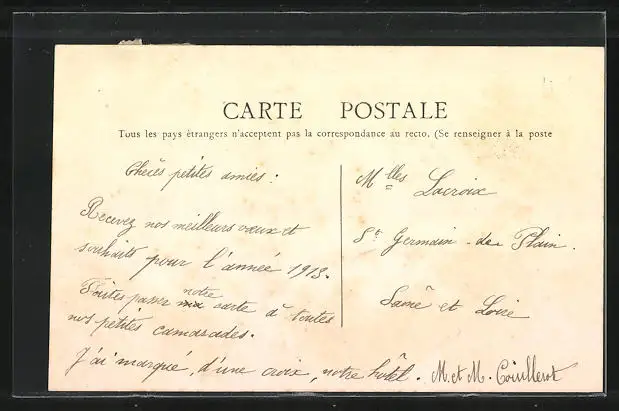 CARTE POSTALE
Tous les pays étrangers n'acceptent pas la correspondance au recto. (Se renseigner à la poste
Chères petites amies :
Recevez nos meilleurs vœux et
souhaits pour l'année 1913.
Faites passer notre carte à toutes
nos petites camarades.
J'ai marqué, d'une croix, notre hôtel. M. et M.
Mlles Lacroix
St Germain-du-Plain.
Saône et Loire